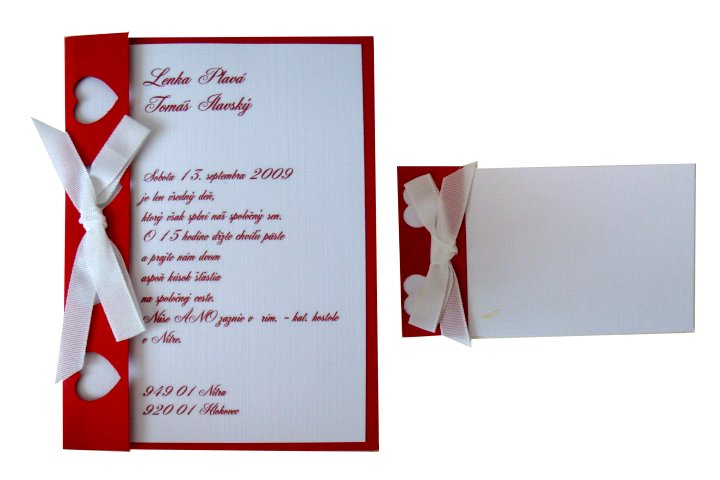 Lenka Plavá
Tomáš Ilavský
Sobota 13. septembra 2009
je len všedný deň,
ktorý však splní náš spoločný sen.
O 15 hodine držte chvíľu päste
a prajte nám dvom
aspoň kúsok šťastia
na spoločnej ceste.
Naše ÁNO zaznie v rím. - kat. kostole
v Nitre.
949 01 Nitra
920 01 Hlohovec